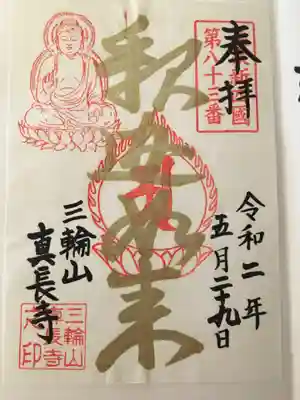 奉拝
第八十三番
釈迦如来
令和二年
五月二十九日
三輪山
真長寺
三輪山
真長寺
之印